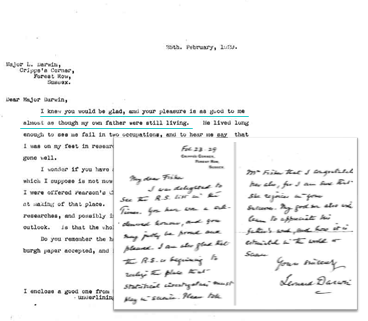 25th. February, 1929.
Major L. Darwin,
Cripp's Corner,
Forest Row,
Sussex.
Dear Major Darwin,
I knew you would be glad, and your pleasure is as good to me
almost as though my own father were still living. He lived long
enough to see me fail in two occupations, and to hear me say that
I was on my feet in research
gone well.
I wonder if you have
which I suppose is not now
I were offered Pearson's
at making of that place.
researches, and possibly
outlook. Is that the
Do you remember the
burgh paper accepted, and
I enclose a good one from
underlining
Feb 23. 29
Cripps's Corner,
Forest Row,
Sussex.
My dear Fisher
I was delighted to
see the R.S. list in the
Times. You have won a
honour, and you
may justly be proud and
pleased. I am also glad that
the R.S. is beginning to
realise the place that
statistical investigations must
play in science. Please tell
Mrs Fisher that I congratulate
her also, for I am sure that
she rejoices in your
success.
Yours sincerely
Leonard Darwin